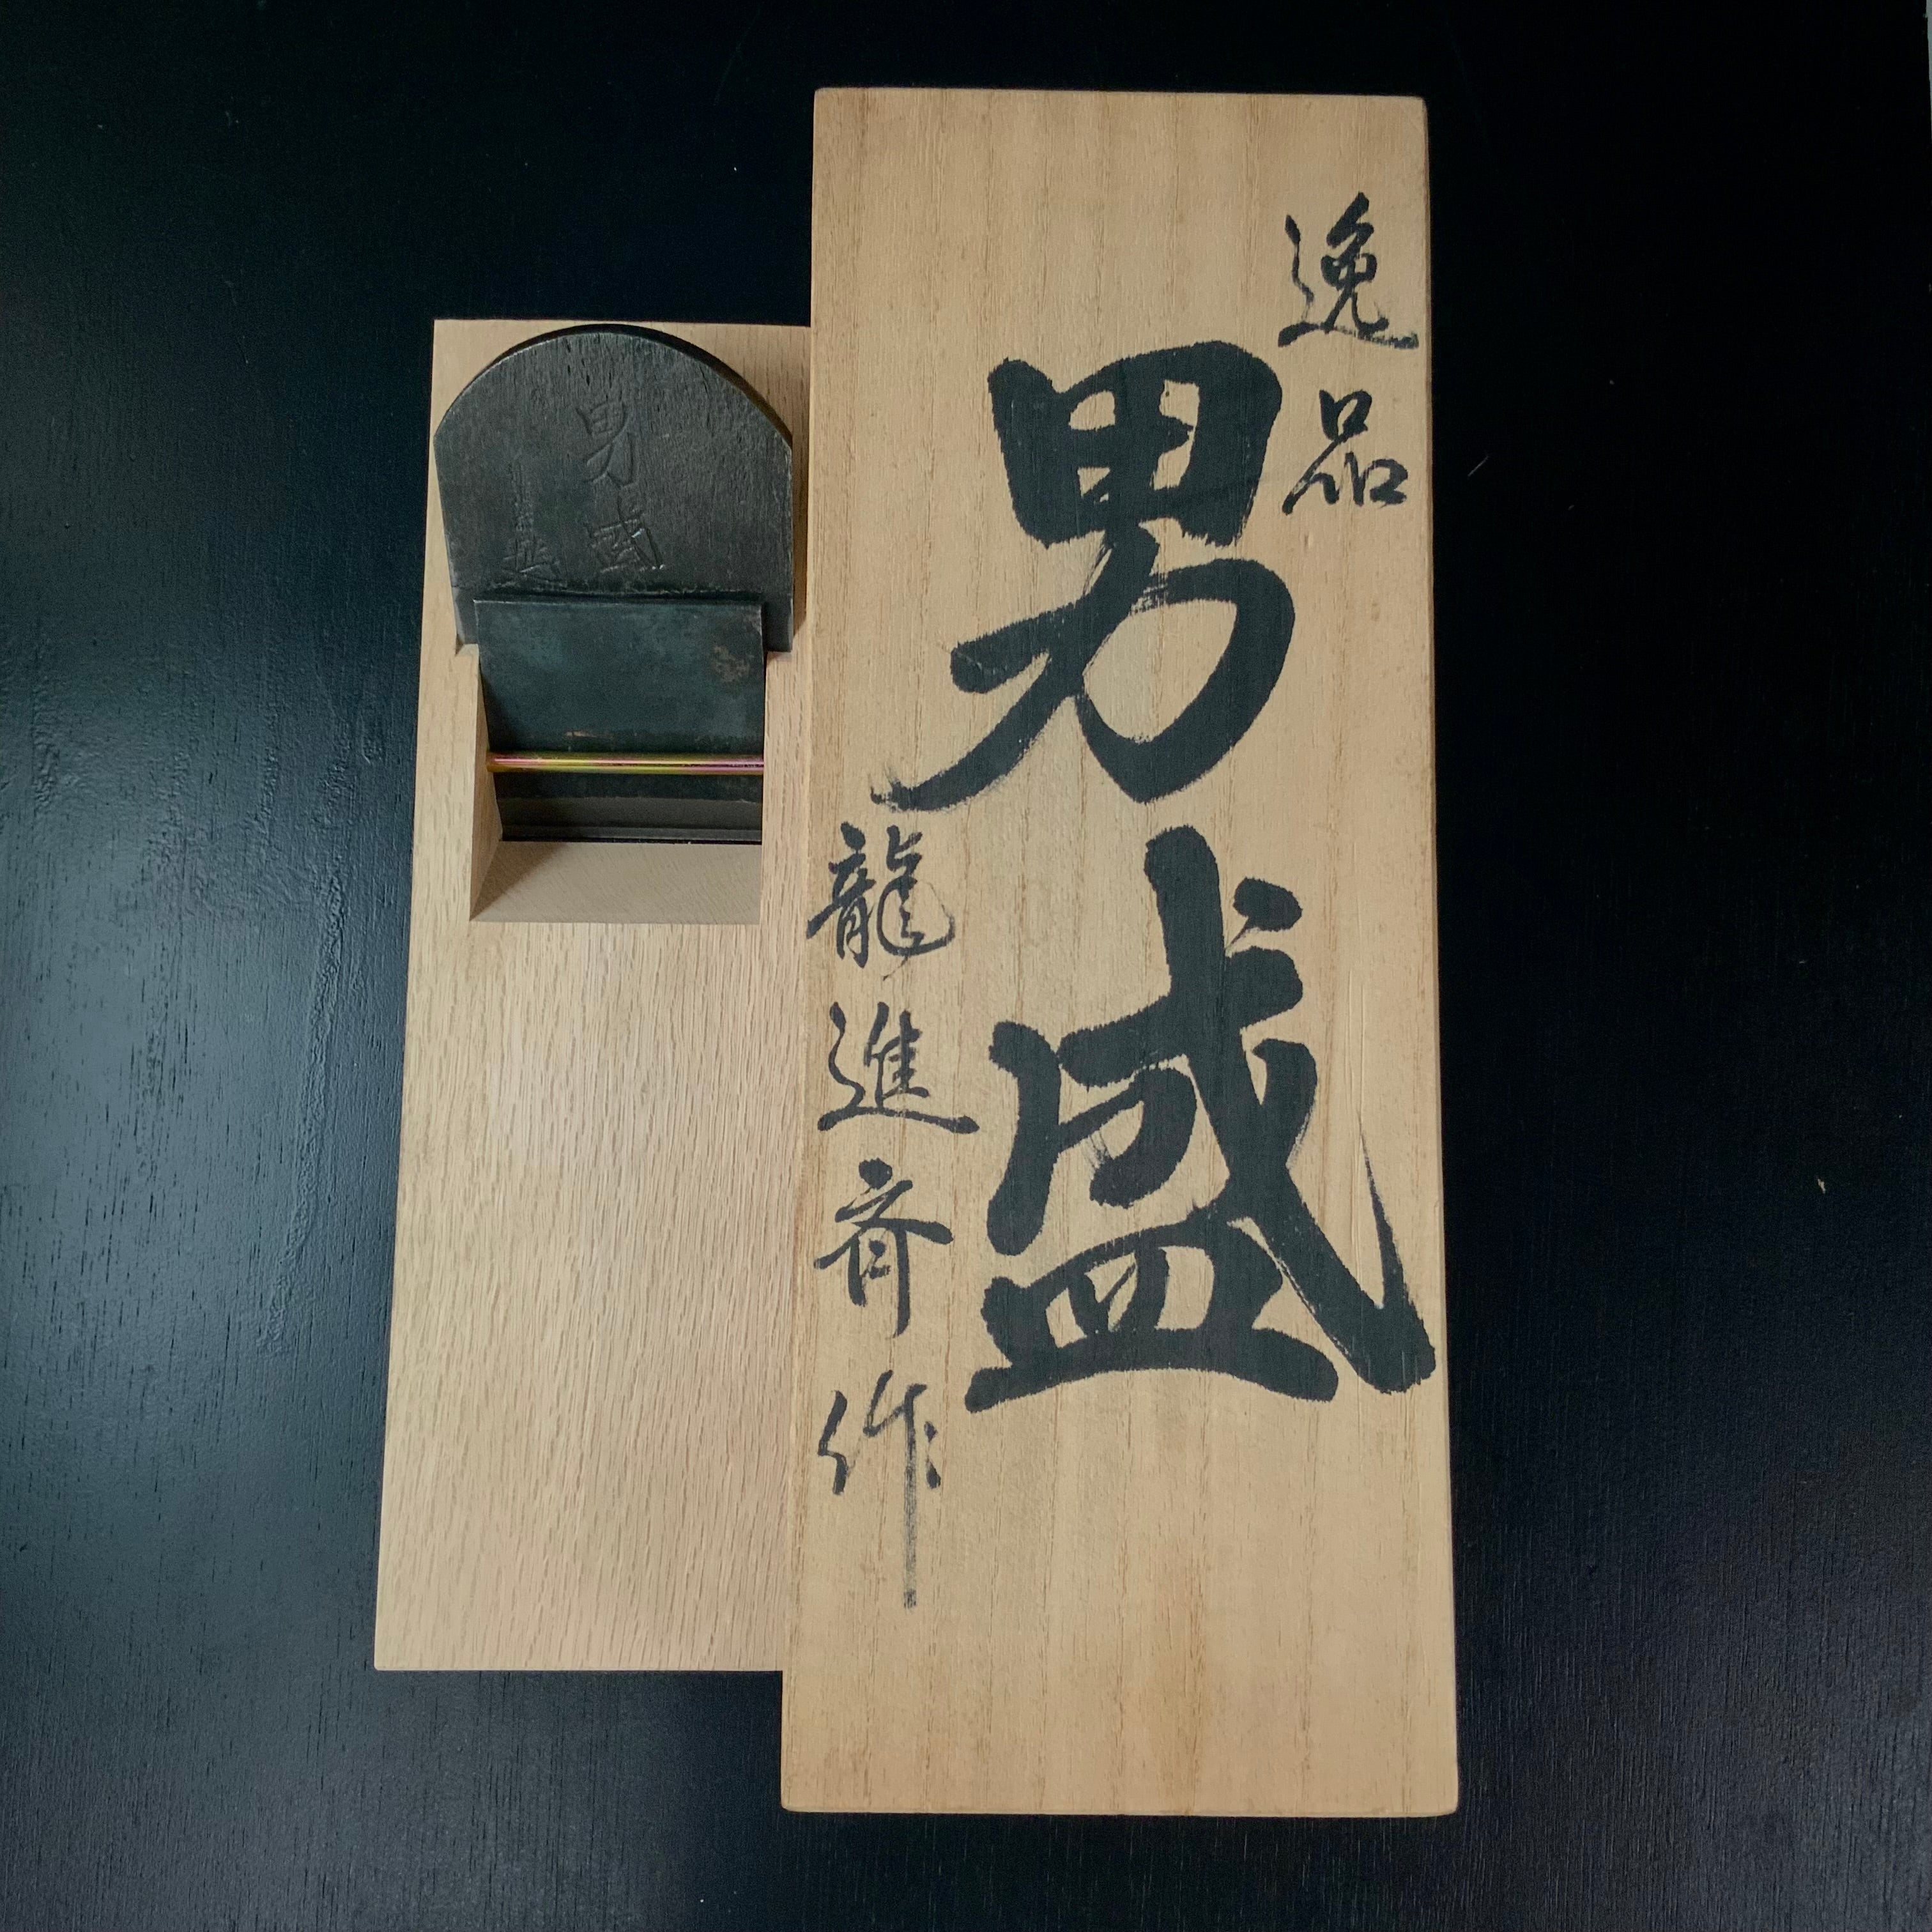 逸品
男盛
龍進斉作
男盛